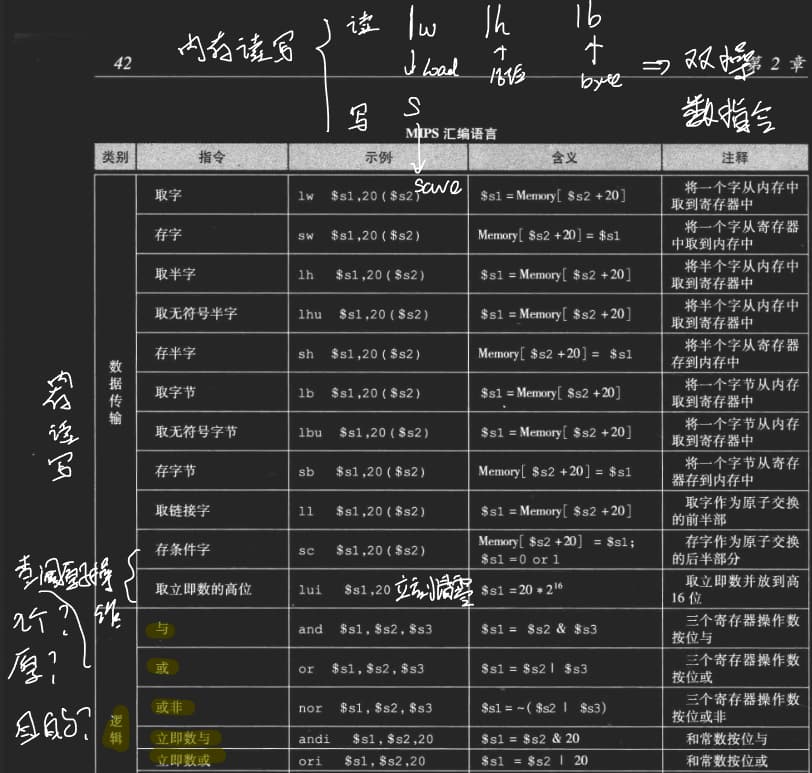 读 lw lh lb
42 内存读写 ↓ load ↑ ↑ byte ⇒ 双操 第 2 章
写 S 数指令
MIPS 汇编语言
类别 指令 示例 含义 注释
save
取字 lw $s1,20($s2) $s1 = Memory[ $s2 +20] 将一个字从内存中
取到寄存器中
存字 sw $s1,20($s2) Memory[ $s2 +20] = $s1 将一个字从寄存器
中取到内存中
取半字 lh $s1,20($s2) $s1 = Memory[ $s2 +20] 将半个字从内存中
取到寄存器中
取无符号半字 lhu $s1,20($s2) $s1 = Memory[ $s2 +20] 将半个字从内存中
取到寄存器中
存半字 sh $s1,20($s2) Memory[ $s2 +20] = $s1 将半个字从寄存器
存到内存中
数据传输
内存读写
取字节 lb $s1,20($s2) $s1 = Memory[ $s2 +20] 将一个字节从内存
取到寄存器中
取无符号字节 lbu $s1,20($s2) $s1 = Memory[ $s2 +20] 将一个字节从内存
取到寄存器中
存字节 sb $s1,20($s2) Memory[ $s2 +20] = $s1 将一个字节从寄存
器存到内存中
取链接字 ll $s1,20($s2) $s1 = Memory[ $s2 +20] 取字作为原子交换
的前半部
存条件字 sc $s1,20($s2) Memory[ $s2 +20] = $s1; 存字作为原子交换
$s1 =0 or 1 的后半部分
取立即数的高位 lui $s1,20 $s1 =20 * 2¹⁶ 取立即数并放到高
16 位
与 and $s1,$s2,$s3 $s1 = $s2 & $s3 三个寄存器操作数
按位与
或 or $s1,$s2,$s3 $s1 = $s2 | $s3 三个寄存器操作数
按位或
原?
或非 nor $s1,$s2,$s3 $s1 = ~( $s2 | $s3) 三个寄存器操作数
按位或非
逻辑
立即数与 andi $s1,$s2,20 $s1 = $s2 & 20 和常数按位与
立即数或 ori $s1,$s2,20 $s1 = $s2 | 20 和常数按位或